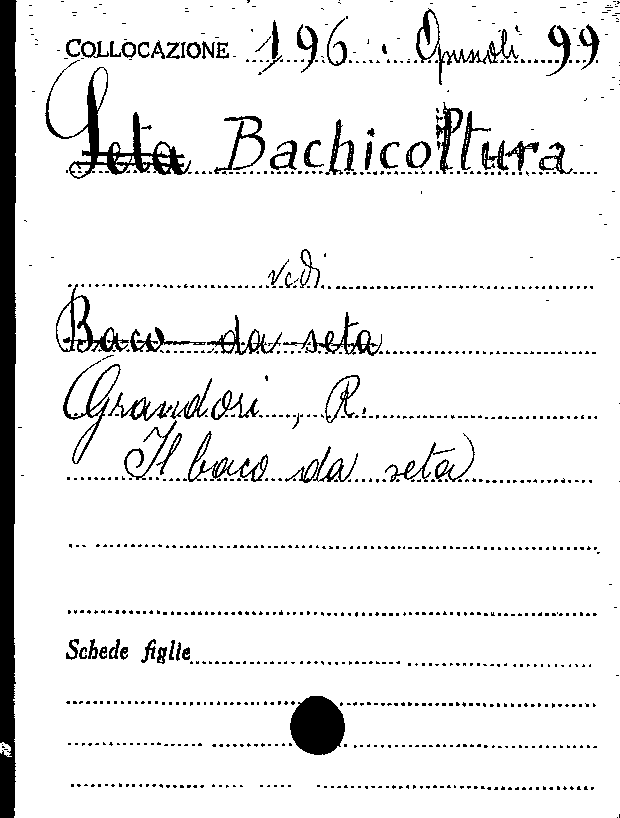 COLLOCAZIONE 196. Opuscoli 99
Seta Bachicoltura
vedi
Baco da seta
Grandori, R.
Il baco da seta
Schede figlie